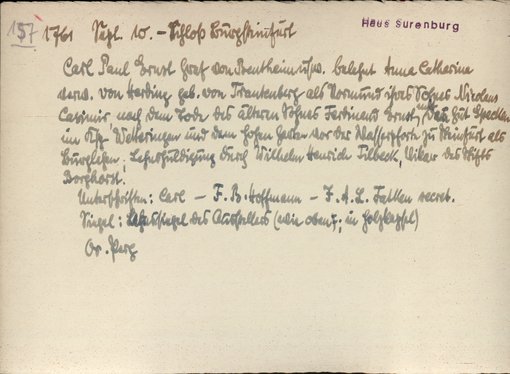 157 1761 Sept. 10. - Schloß Burgsteinfurt
Haus Surenburg
Carl Paul Ernst Graf von Bentheim usw. belehnt Anna Catharina
verw. von Harding geb. von Trautenberg als Vormund ihres Sohnes Nikolaus
Casimir nach dem Tode des älteren Sohnes Ferdinand Ernst, das Gut
im Ksp. Wettringen und dem hohen Garten vor der Wasserpforte zu Steinfurt als
Burglehen; Lehnshuldigung durch Wilhelm Henrich Filbeck, Vikar des Stifts
Borghorst.
Unterschriften: Carl - F. B. Hoffmann - F. A. L. secret.
Siegel: des Ausstellers (wie oben; in Holzkapsel)
Or. Perg